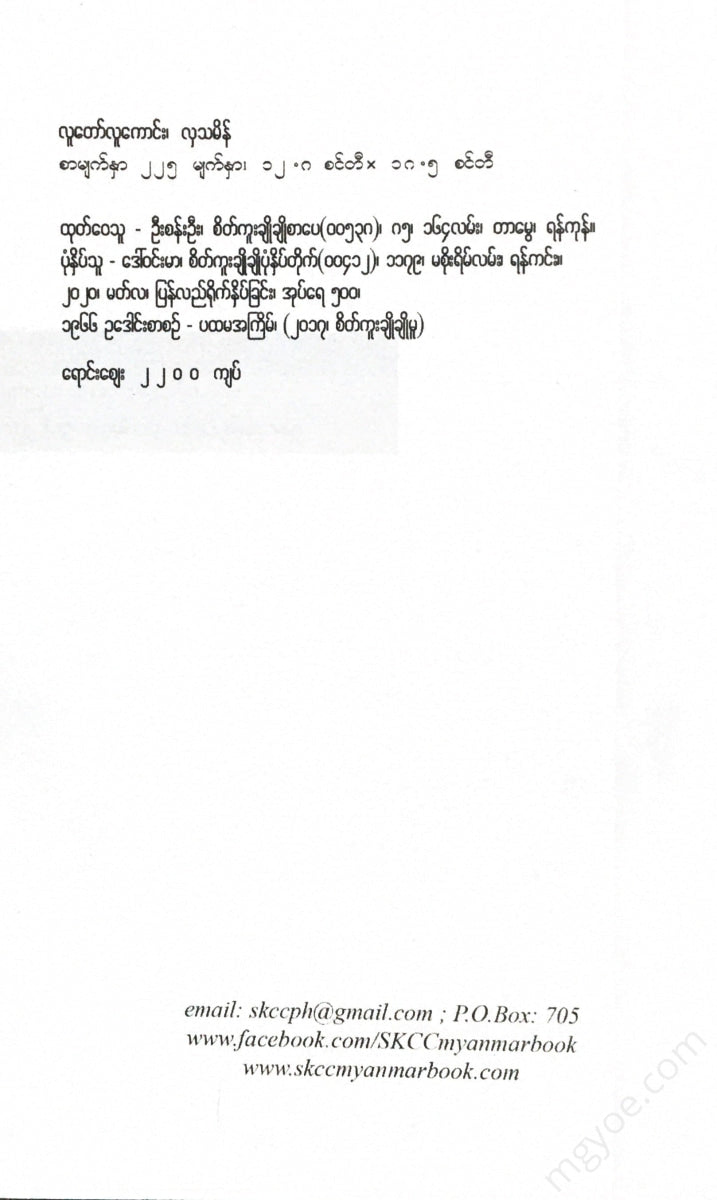 လူတော်လူကောင်း၊ လှသမိန်
စာမျက်နှာ ၂၂၅ မျက်နှာ၊ ၁၂.၈ စင်တီ× ၁၈.၅ စင်တီ
ထုတ်ဝေသူ - ဦးစန်းဦး၊ စိတ်ကူးချိုချိုစာပေ(၀၀၅၃၈)၊ ၈၅၊ ၁၆၄လမ်း၊ တာမွေ၊ ရန်ကုန်။
ပုံနှိပ်သူ - ဒေါ်ဝင်းမာ၊ စိတ်ကူးချိုချိုပုံနှိပ်တိုက်(၀၀၄၁၂)၊ ၁၁၇၉၊ မစိုးရိမ်လမ်း၊ ရန်ကင်း၊
၂၀၂၀၊ မတ်လ၊ ပြန်လည်ရိုက်နှိပ်ခြင်း၊ အုပ်ရေ ၅၀၀၊
၁၉၆၆ ဥဒေါင်းစာစဉ် - ပထမအကြိမ်၊ (၂၀၁၇၊ စိတ်ကူးချိုချိုမူ)
ရောင်းဈေး ၂၂၀၀ ကျပ်
email: skccph@gmail.com ; P.O.Box: 705
www.facebook.com/SKCCmyanmarbook
www.skccmyanmarbook.com
mgyoe.com